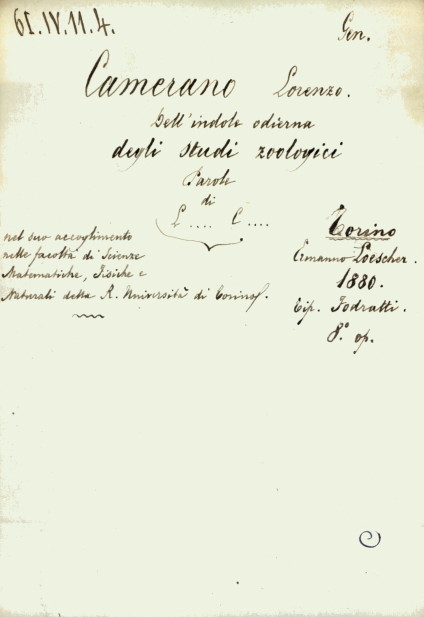 61.IV.11.4.
Gen.
Camerano Lorenzo.
Dell'indole odierna
degli studi zoologici
Parole
di
L .... C ....
nel suo accoglimento
nelle facoltà di Scienze
Matematiche, Fisiche e
Naturali della R. Università di Torino.
Torino
Ermanno Loescher.
1880.
Tip. Fodratti.
8.° op.